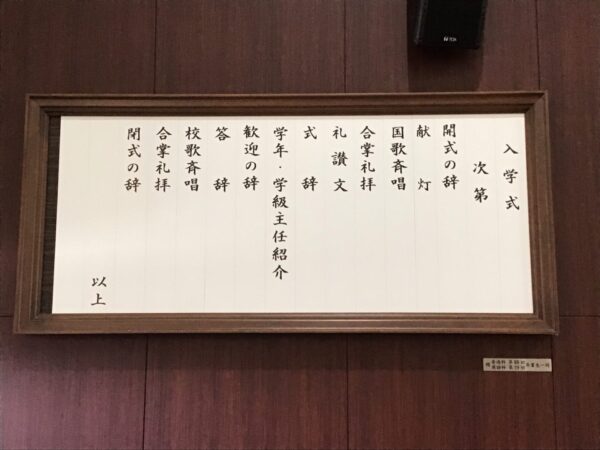 入学式
次第
開式の辞
献灯
国歌斉唱
合掌礼拝
礼讃文
式辞
学年・学級主任紹介
歓迎の辞
答辞
校歌斉唱
合掌礼拝
閉式の辞
以上